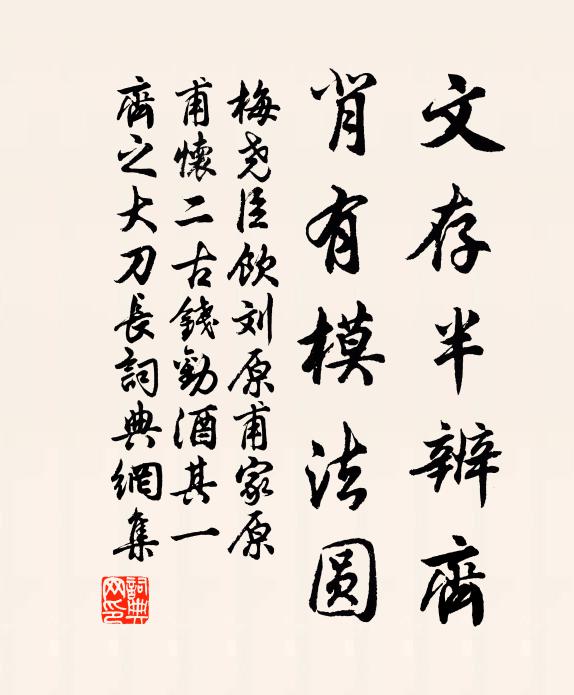 文存半辨齊
背有模法圆
梅尧臣飲刘原甫家原
甫懷二古錢勸酒其一
齊之大刀長詞典網集
詞典網印